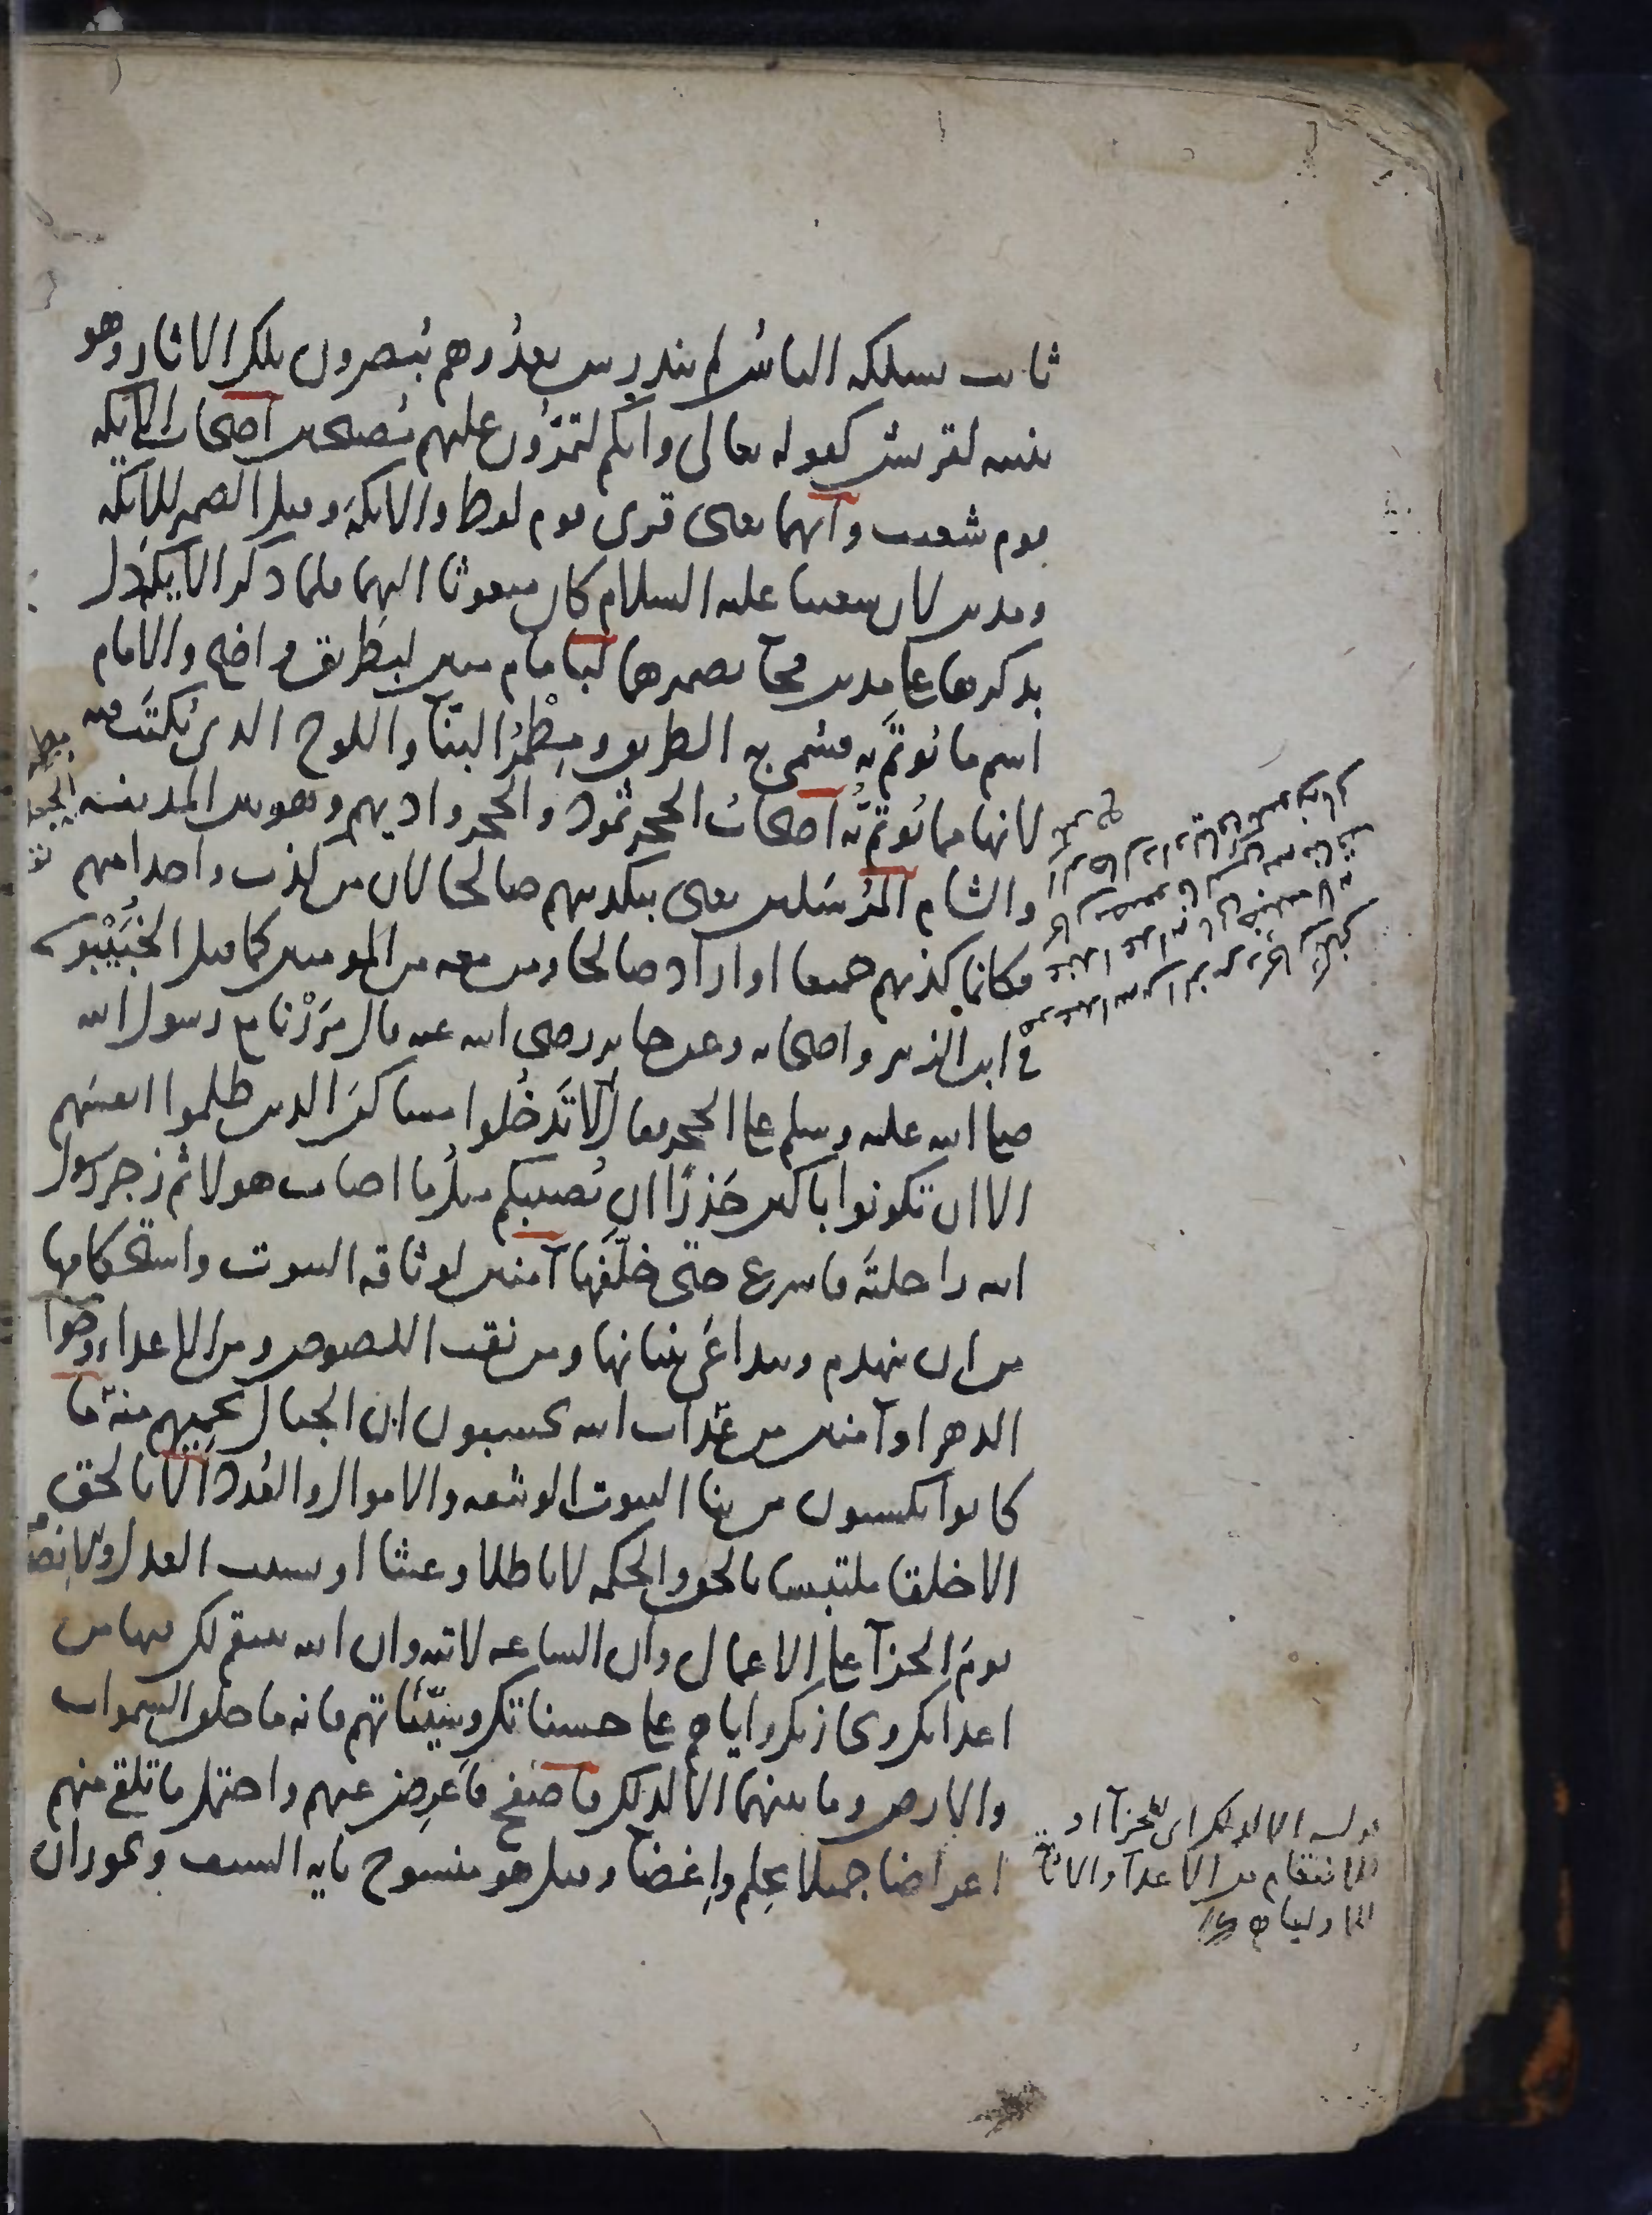 ثابت يسلكه الناس لم يندرس بعدُ وهم يُبصرون تلك الاثار وهو
تنبيه لقريش كقوله تعالى وانكم لتمرّون عليهم مُصبحين اصحاب الايكة
قوم شعيب وانهما يعنى قرى قوم لوط والايكة وقيل الضمير للايكة
ومدين لان شعيبا عليه السلام كان مبعوثا اليهما فلما ذكر الايكة دل
بذكرها على مدين فجآ بضميرهما لبامام مبين لبطريق واضح والامام
اسم ما يُوتمّ به فسُمى به الطريق ومِطْمَرُ البنآ واللوح الذى يُكتَب فيه
لانها مما يُوتمّ به اصحابُ الحجر ثمود والحجر واديهم وهو بين المدينة
والشام المُرسَلين يعنى بتكذيبهم صالحا لان من كذب واحدا منهم
فكانما كذبهم جميعا او اراد صالحا ومن معه من المومنين كما قيل الخُبَيْبيون
في ابن الزبير واصحابه وعن جابر رضى الله عنه قال مَرَرْنا مع رسول الله
صلى الله عليه وسلم على الحجر فقال لا تَدخُلوا مساكنَ الذين ظلموا انفسَهم
الا ان تكونوا باكين حَذرًا ان يُصيبكم مثلُ ما اصاب هولا ثم زجر رسول
الله راحلتَه فاسرع حتى خلّفها آمنين لوثاقة البيوت واستحكامها
من ان تنهدم وتتداعى بنيانها ومن نقب اللصوص ومن الاعداء وحوا
الدهر او آمنين من عذاب الله يحسبون ان الجبال تحميهم منه ما
كانوا يكسبون من بنا البيوت الوثيقة والاموال والعُدد الا بالحق
الا خلقا ملتبسا بالحق والحكمة لا باطلا وعبثا او بسبب العدل والانصا
يومَ الجزآ على الاعمال وان الساعة لاتية وان الله ينتقم لك فيها من
اعدائك ويجازيك واياهم على حسناتك وسيّئاتهم فانه ما خلق السموات
والارض وما بينهما الا لذلك فاصفح فاَعرِض عنهم واحتمل ما تلقى منهم
اعراضا جميلا بحِلم واِغضآ وقيل هو منسوخ باية السيف ويجوز ان
قوله الا لذلك اى للجزآ او
للانتقام من الاعدآ والاثابة
للاولياء